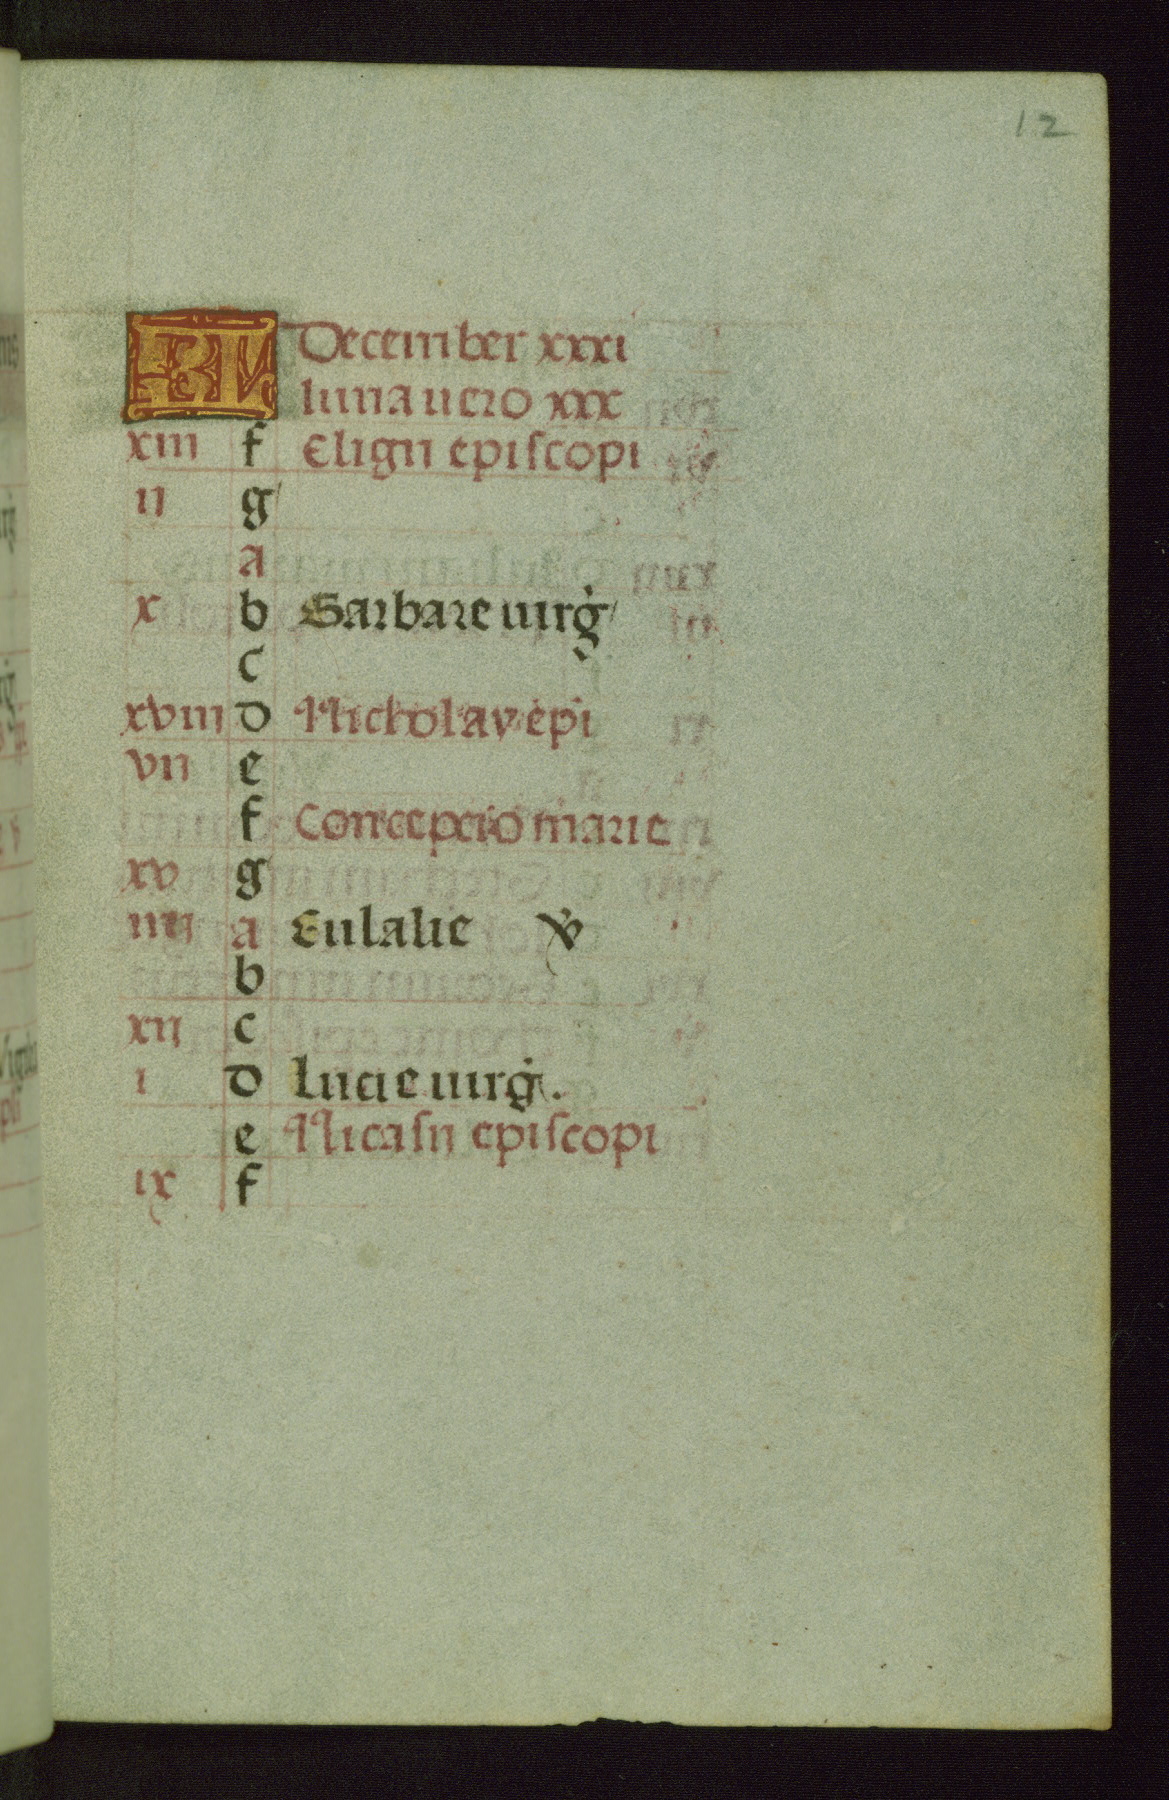 12
KL December xxxi
luna uero xxx
xiii f Eligii episcopi
ii g
a
x b Barbare uirg
c
xviii d Nicholay epi
vii e
f Concepcio marie
xv g
iiii a Eulalie v
b
xii c
i d Lucie uirg.
e Nicasii episcopi
ix f